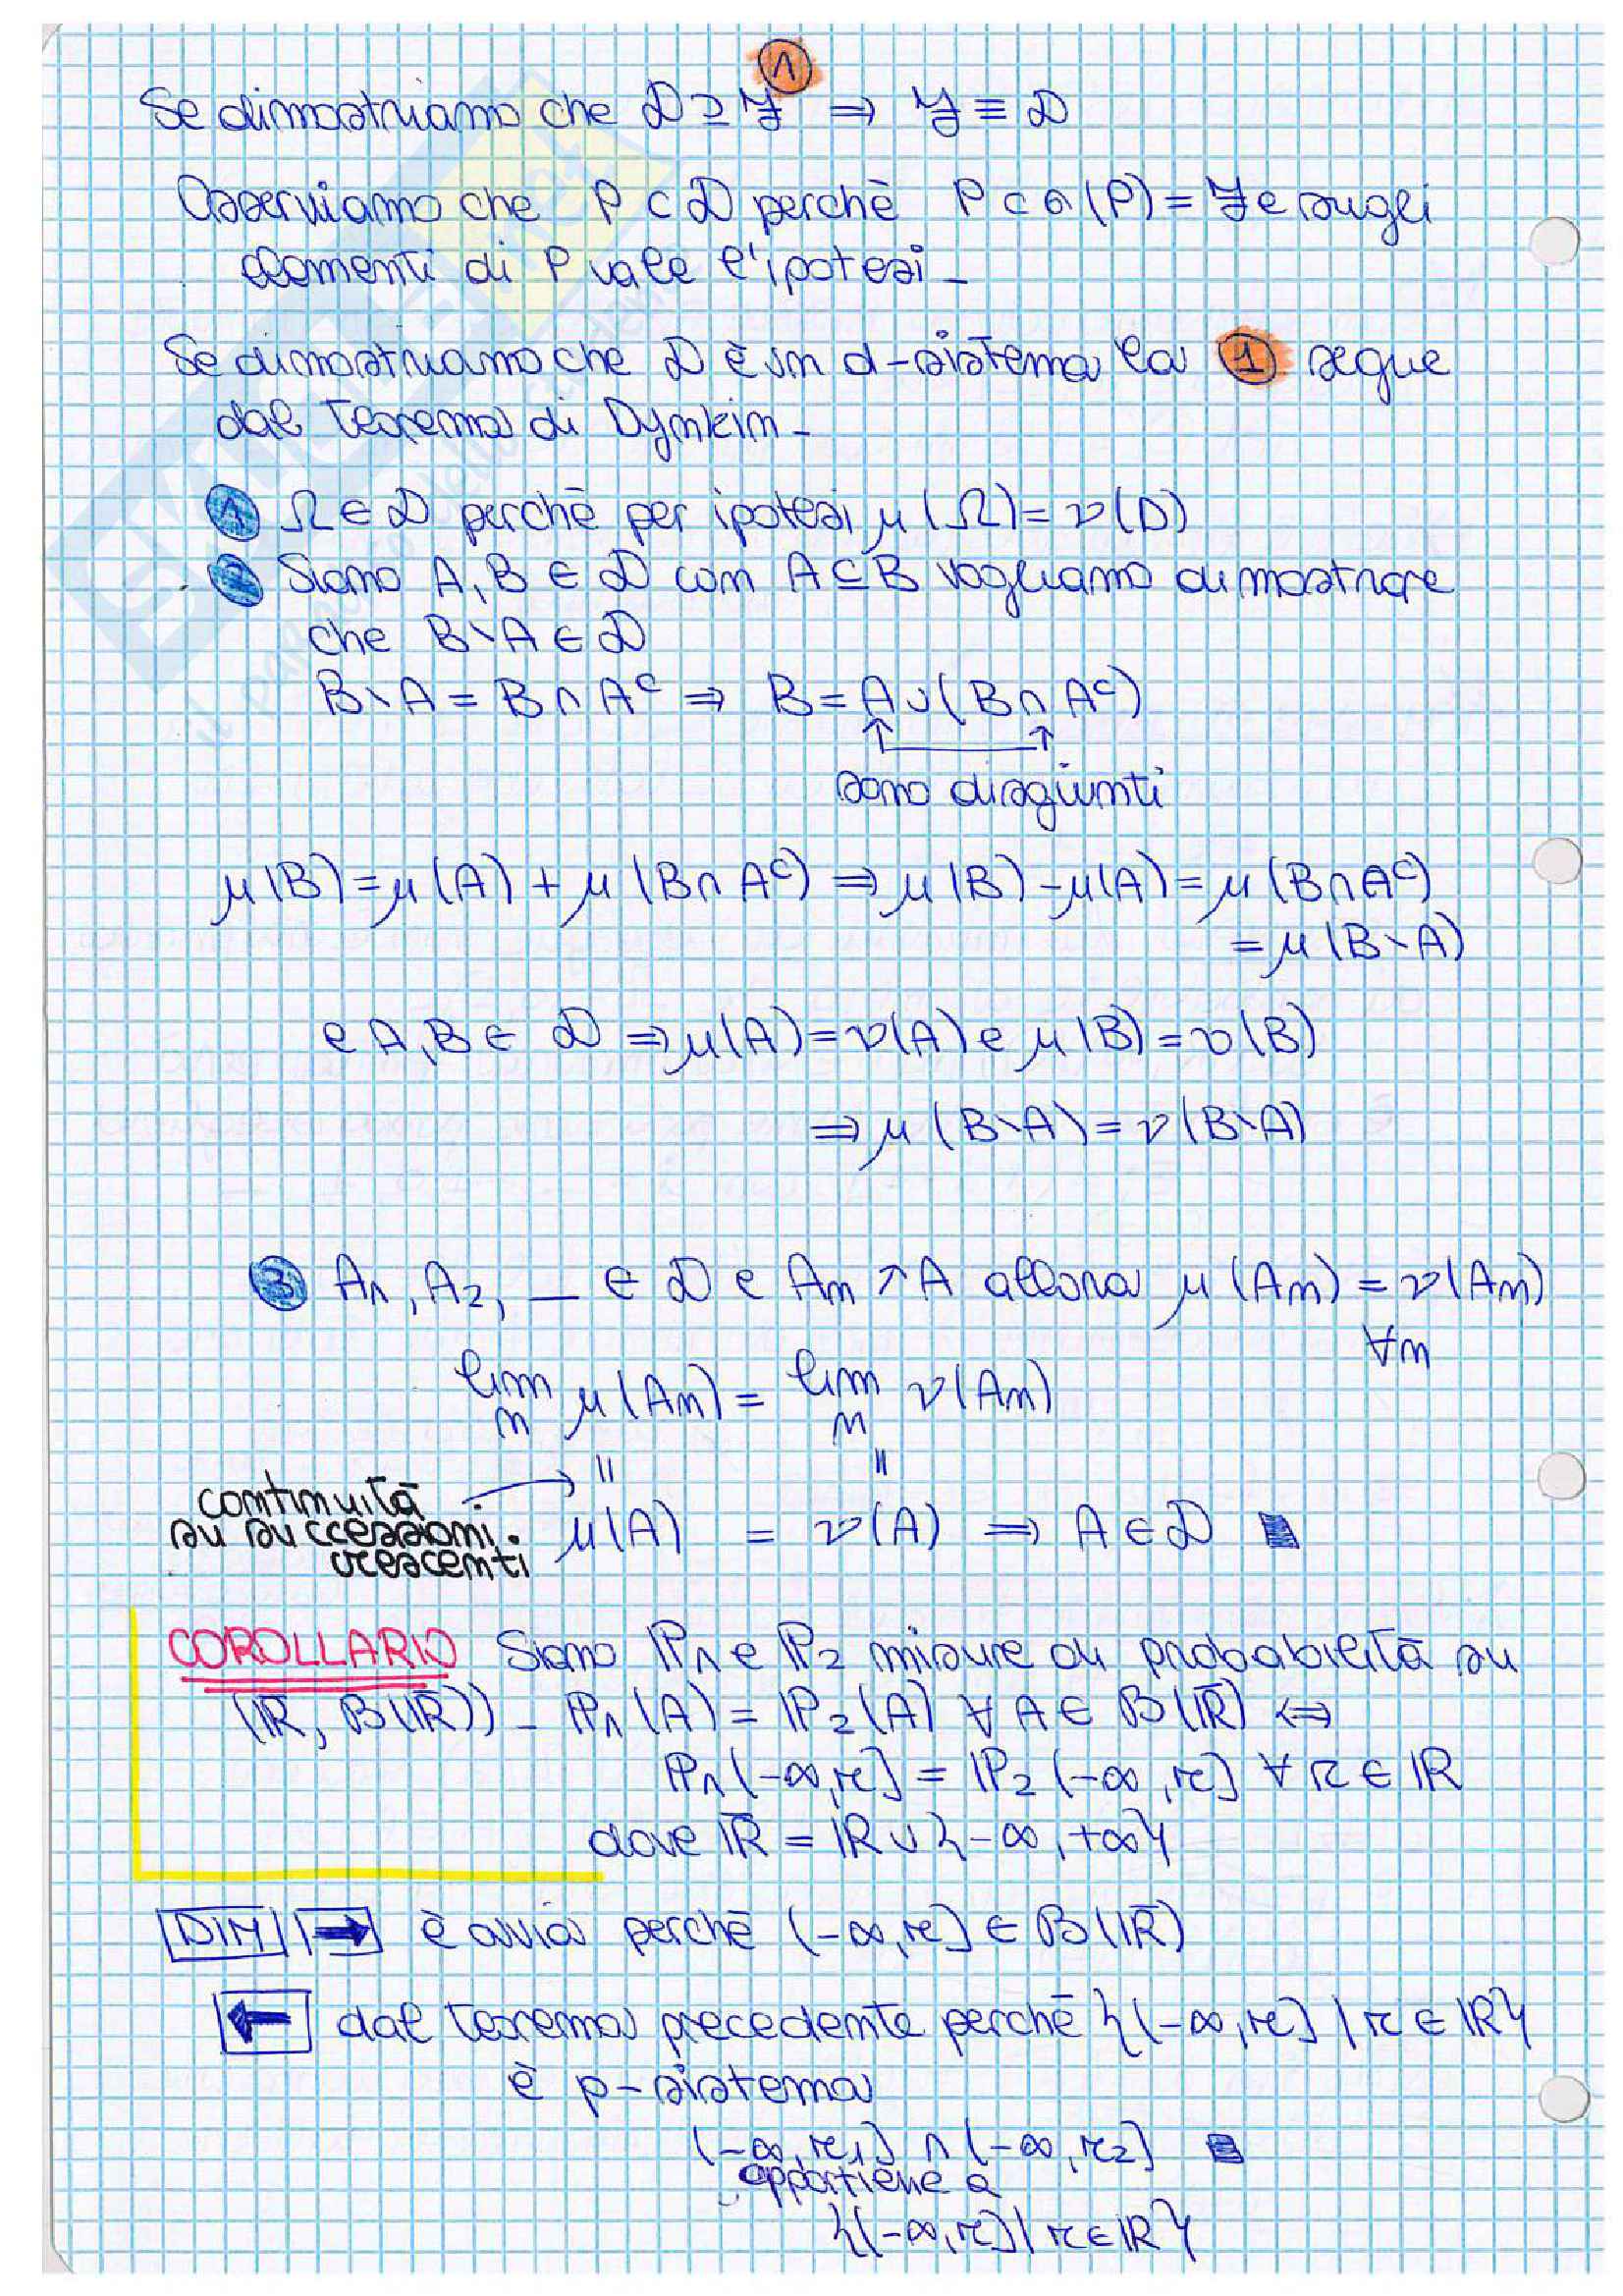 ①
Se dimostriamo che D ⊇ F ⇒ F ≡ D
Osserviamo che P ⊂ D perchè P ⊂ σ(P) = F e sugli
elementi di P vale l'ipotesi _
Se dimostriamo che D è un d-sistema la ① segue
dal teorema di Dynkin _
① Ω ∈ D perchè per ipotesi μ(Ω) = ν(D)
② Siano A, B ∈ D con A ⊆ B vogliamo dimostrare
che B∖A ∈ D
B∖A = B ∩ Aᶜ ⇒ B = A ∪ (B ∩ Aᶜ)
↑ ↑
sono disgiunti
μ(B) = μ(A) + μ(B ∩ Aᶜ) ⇒ μ(B) - μ(A) = μ(B ∩ Aᶜ)
= μ(B∖A)
e A, B ∈ D ⇒ μ(A) = ν(A) e μ(B) = ν(B)
⇒ μ(B∖A) = ν(B∖A)
③ A₁, A₂, _ ∈ D e Aₙ ↗ A allora μ(Aₙ) = ν(Aₙ)
∀n
lim μ(Aₙ) = lim ν(Aₙ)
n n
continuità → = =
su successioni
crescenti
μ(A) = ν(A) ⇒ A ∈ D ■
COROLLARIO Siano ℙ₁ e ℙ₂ misure di probabilità su
(ℝ̅, B(ℝ̅)) _ ℙ₁(A) = ℙ₂(A) ∀ A ∈ B(ℝ̅) ⇔
ℙ₁(-∞, r] = ℙ₂(-∞, r] ∀ r ∈ ℝ
dove ℝ̅ = ℝ ∪ {-∞, +∞}
DIM → è ovvia perchè (-∞, r] ∈ B(ℝ̅)
← dal teorema precedente perchè {(-∞, r] | r ∈ ℝ}
è p-sistema
(-∞, r₁] ∩ (-∞, r₂] ■
appartiene a
{(-∞, r] | r ∈ ℝ}